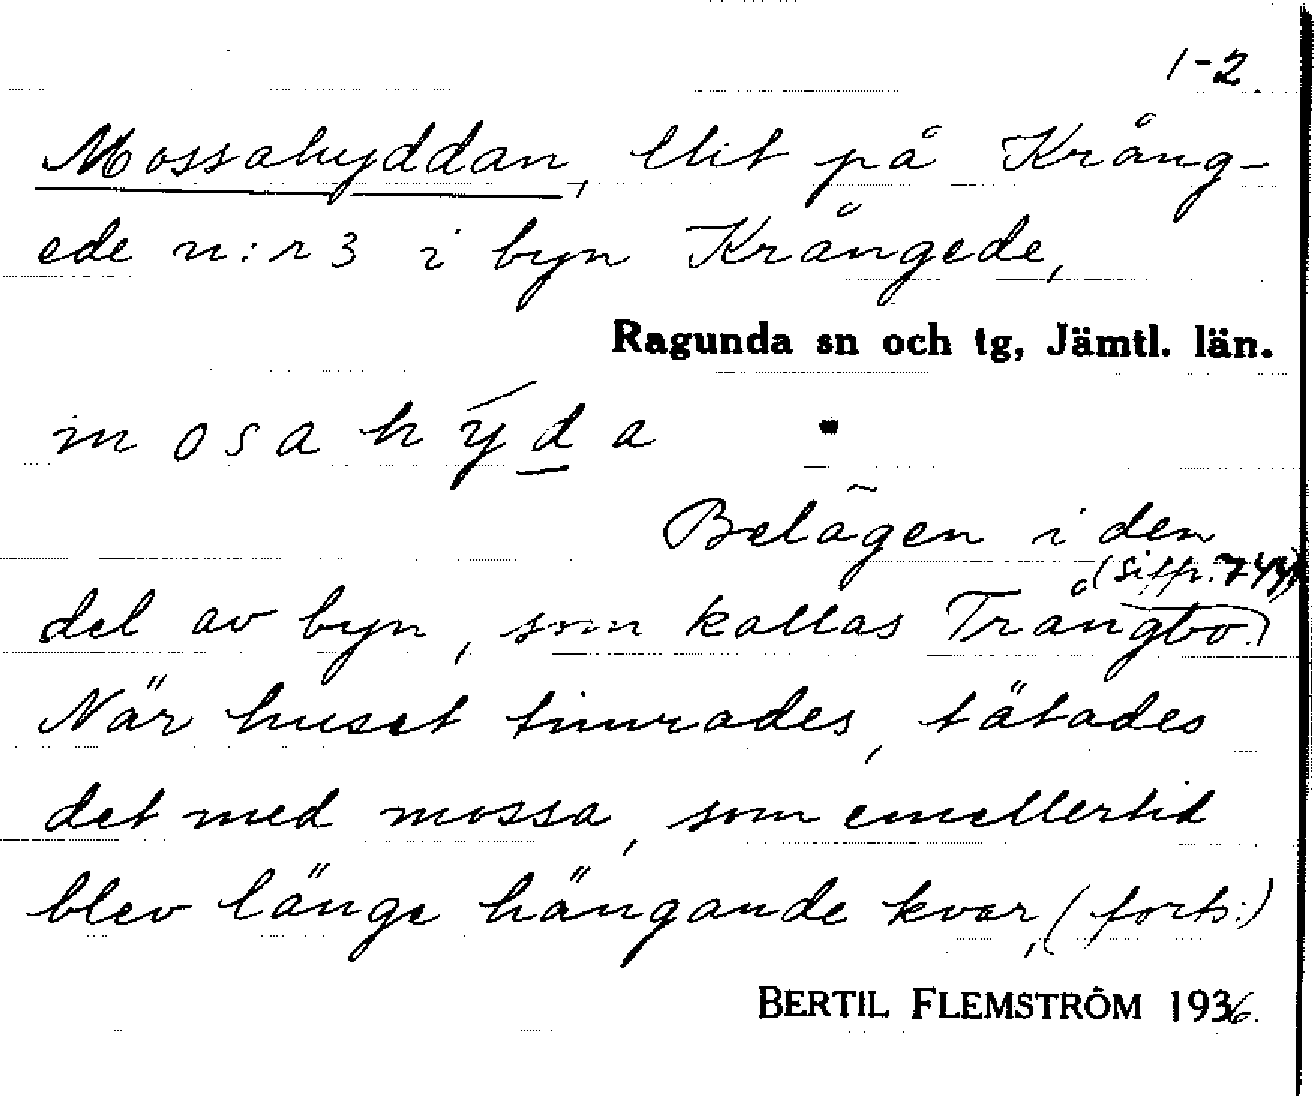 1-2.
Mossahyddan, lht på Krång-
ede n:r 3 i byn Krångede,
Ragunda sn och tg, Jämtl. län.
mosahýda
Belägen i den
(siffr. 744)
del av byn, som kallas Trångbo.
När huset timrades, tätades
det med mossa, som emellertid
blev länge hängande kvar, (forts.)
BERTIL FLEMSTRÖM 1936.